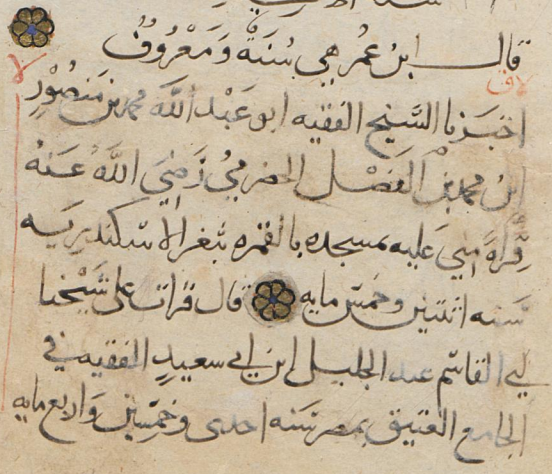 قال ابن عمر هي سنة ومعروف
اخبرنا الشيخ الفقيه ابو عبد الله محمد بن منصور
ابن محمد بن الفضل الحضرمي رضي الله عنه
قراة مني عليه بمسجده بالقمره بثغر الاسكندريه
سنه اثنتين وخمس مايه قال قرات على شيخنا
ابي القاسم عبد الجليل ابن ابي سعيد الفقيه في
الجامع العتيق بمصر سنه احدى وخمسين واربع مايه